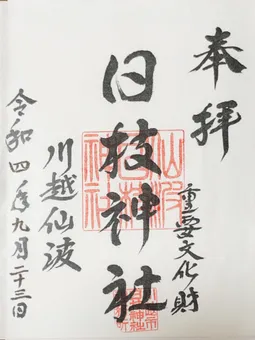 奉拝
重要文化財
日枝神社
川越仙波
令和四年九月二十三日